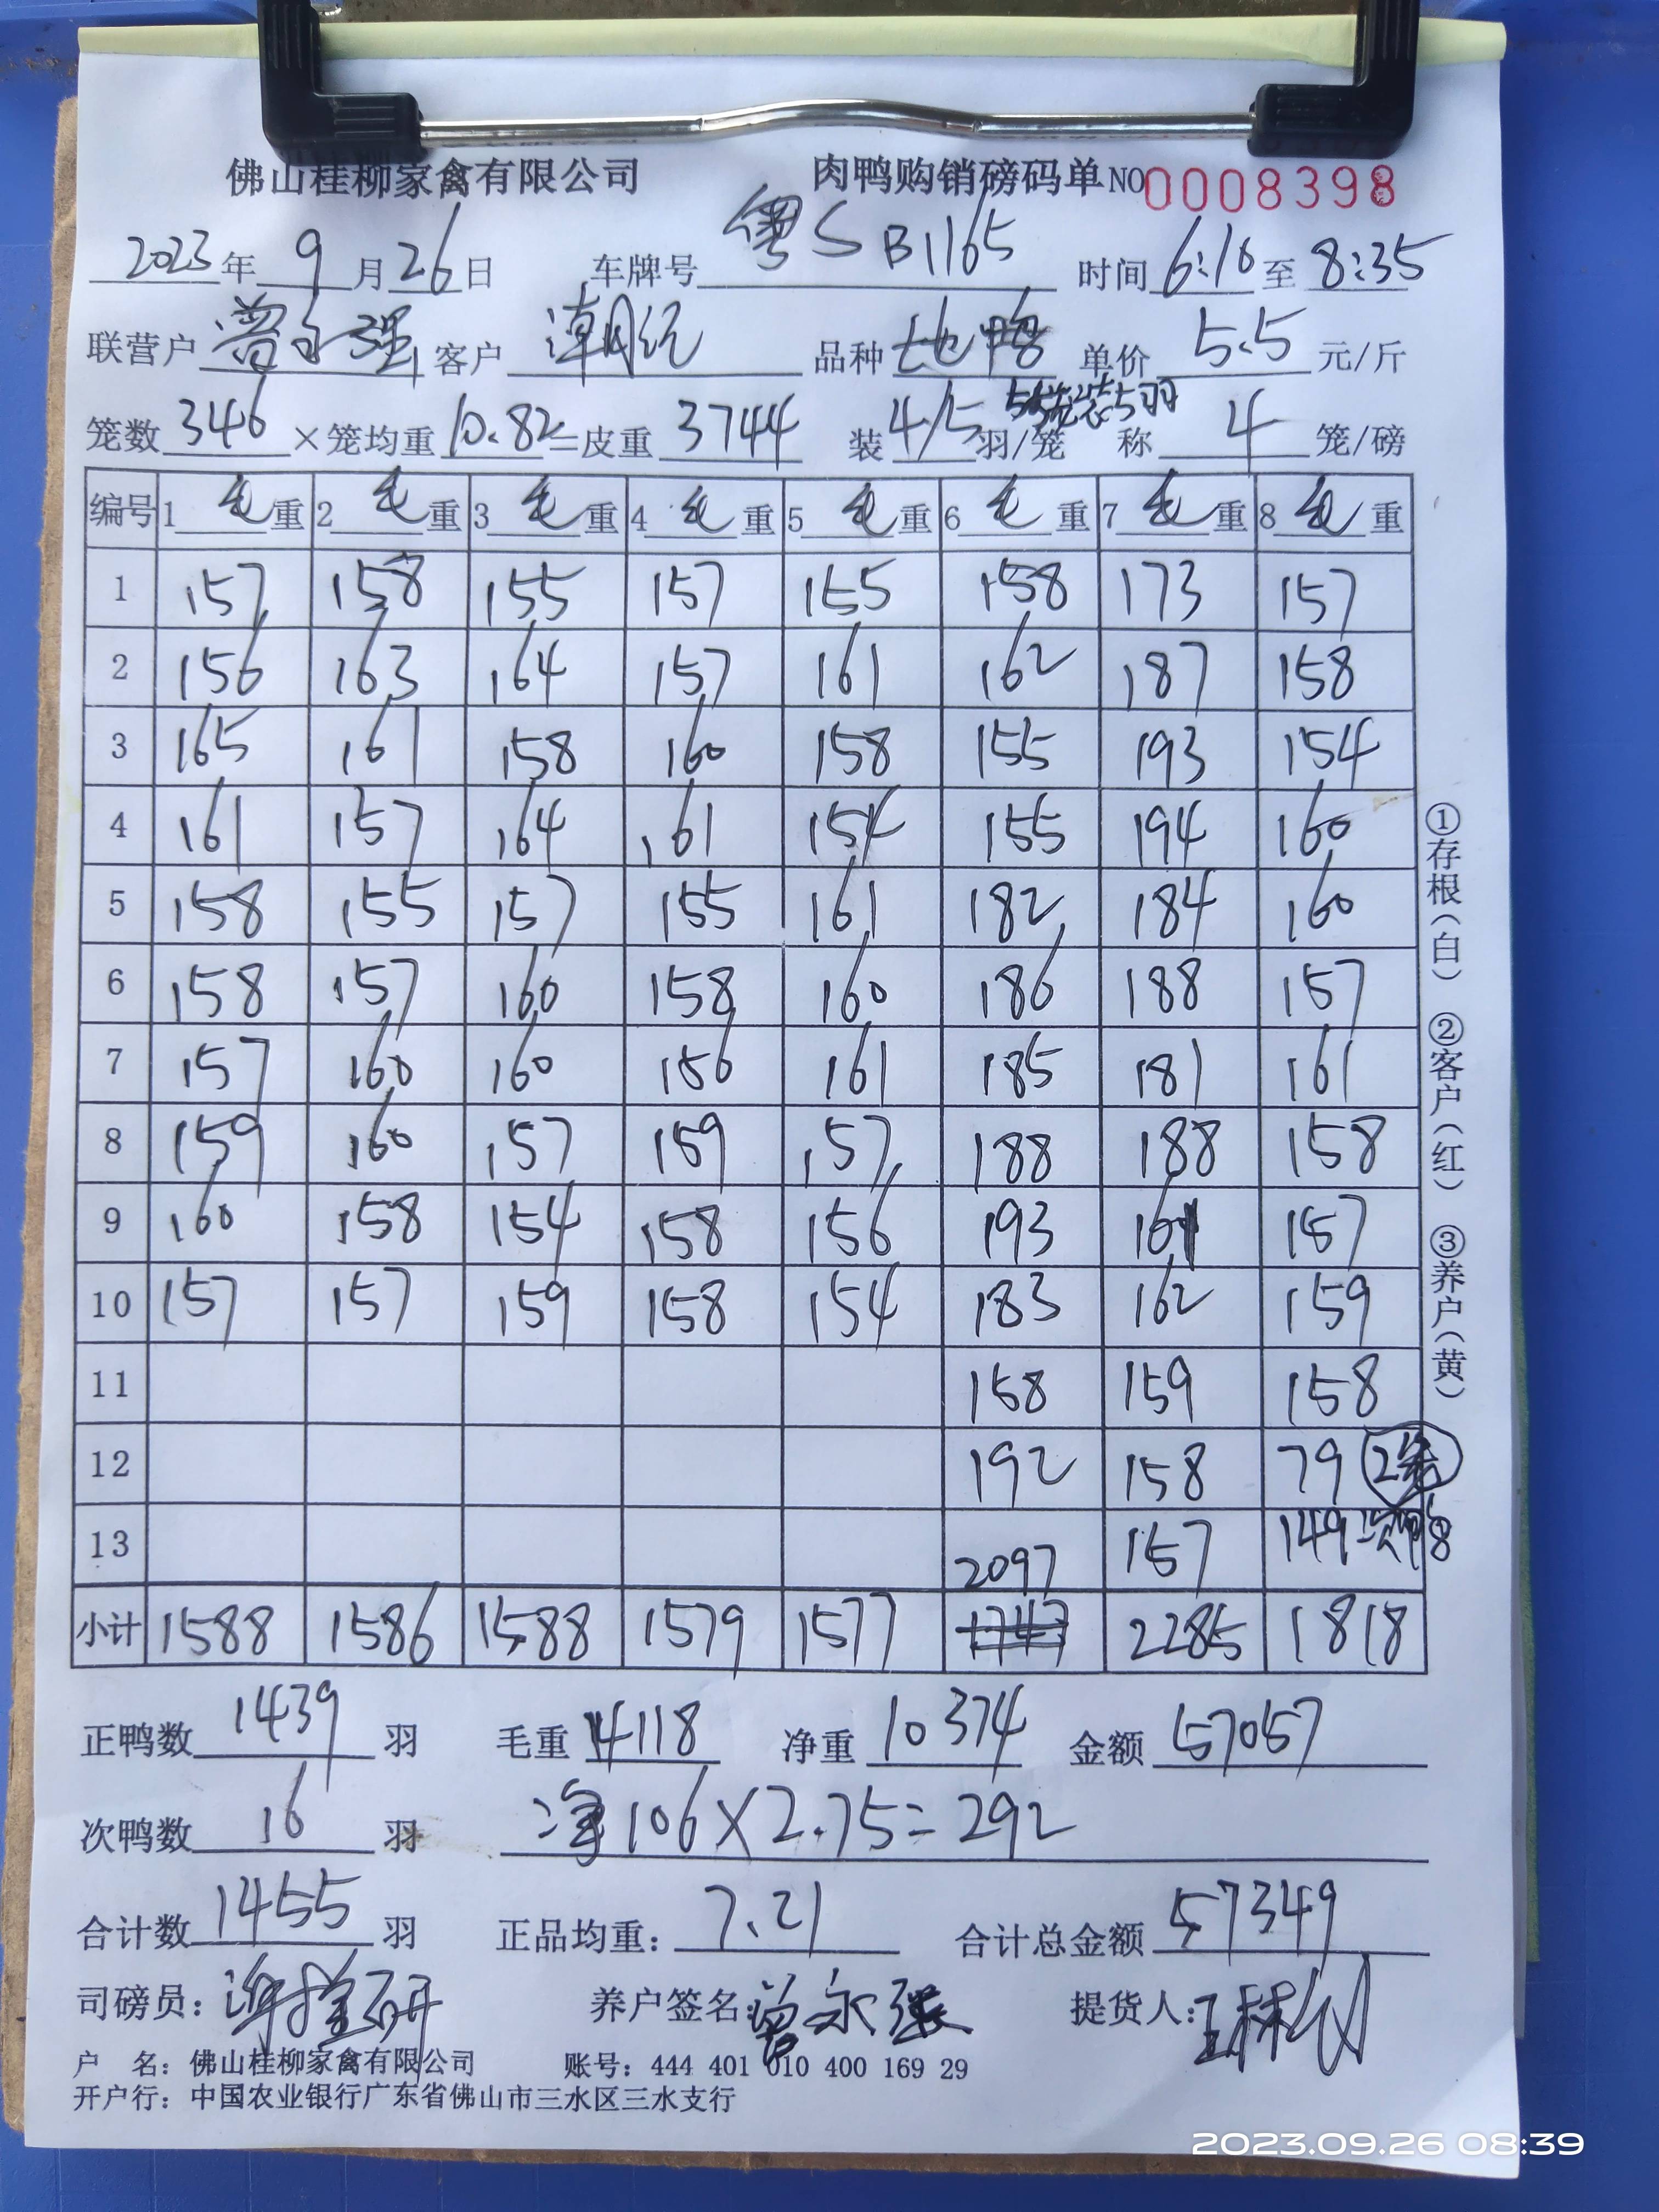 佛山桂柳家禽有限公司 肉鸭购销磅码单NO 0008398
2023年 9月26日 车牌号 粤S B1165 时间 6:10 至 8:35
联营户 曾永强 客户 潮 品种 鸭 单价 5.5 元/斤
笼数 346 ×笼均重 10.82 =皮重 3744 装 4/5 羽/笼 装5羽 称 4 笼/磅
编号 1 毛重 2 毛重 3 毛重 4 毛重 5 毛重 6 毛重 7 毛重 8 毛重
1 157 158 155 157 155 158 173 157
2 156 163 164 157 161 162 187 158
3 165 161 158 160 158 155 193 154
4 161 157 164 161 154 155 194 160
5 158 155 157 155 161 182 184 160
6 158 157 160 158 160 186 188 157
7 157 160 160 156 161 185 181 161
8 159 160 157 159 157 188 188 158
9 160 158 154 158 156 193 161 157
10 157 157 159 158 154 183 162 159
11 158 159 158
12 192 158 79 2笼
13 2097 157 149 次鸭
小计 1588 1586 1588 1579 1577 2285 1818
正鸭数 1439 羽 毛重 14118 净重 10374 金额 57057
次鸭数 16 羽 净106×2.75=292
合计数 1455 羽 正品均重: 7.21 合计总金额 57349
司磅员: 养户签名: 曾永强 提货人:
户 名: 佛山桂柳家禽有限公司 账号: 444 401 010 400 169 29
开户行: 中国农业银行广东省佛山市三水区三水支行
①存根(白) ②客户(红) ③养户(黄)
2023.09.26 08:39